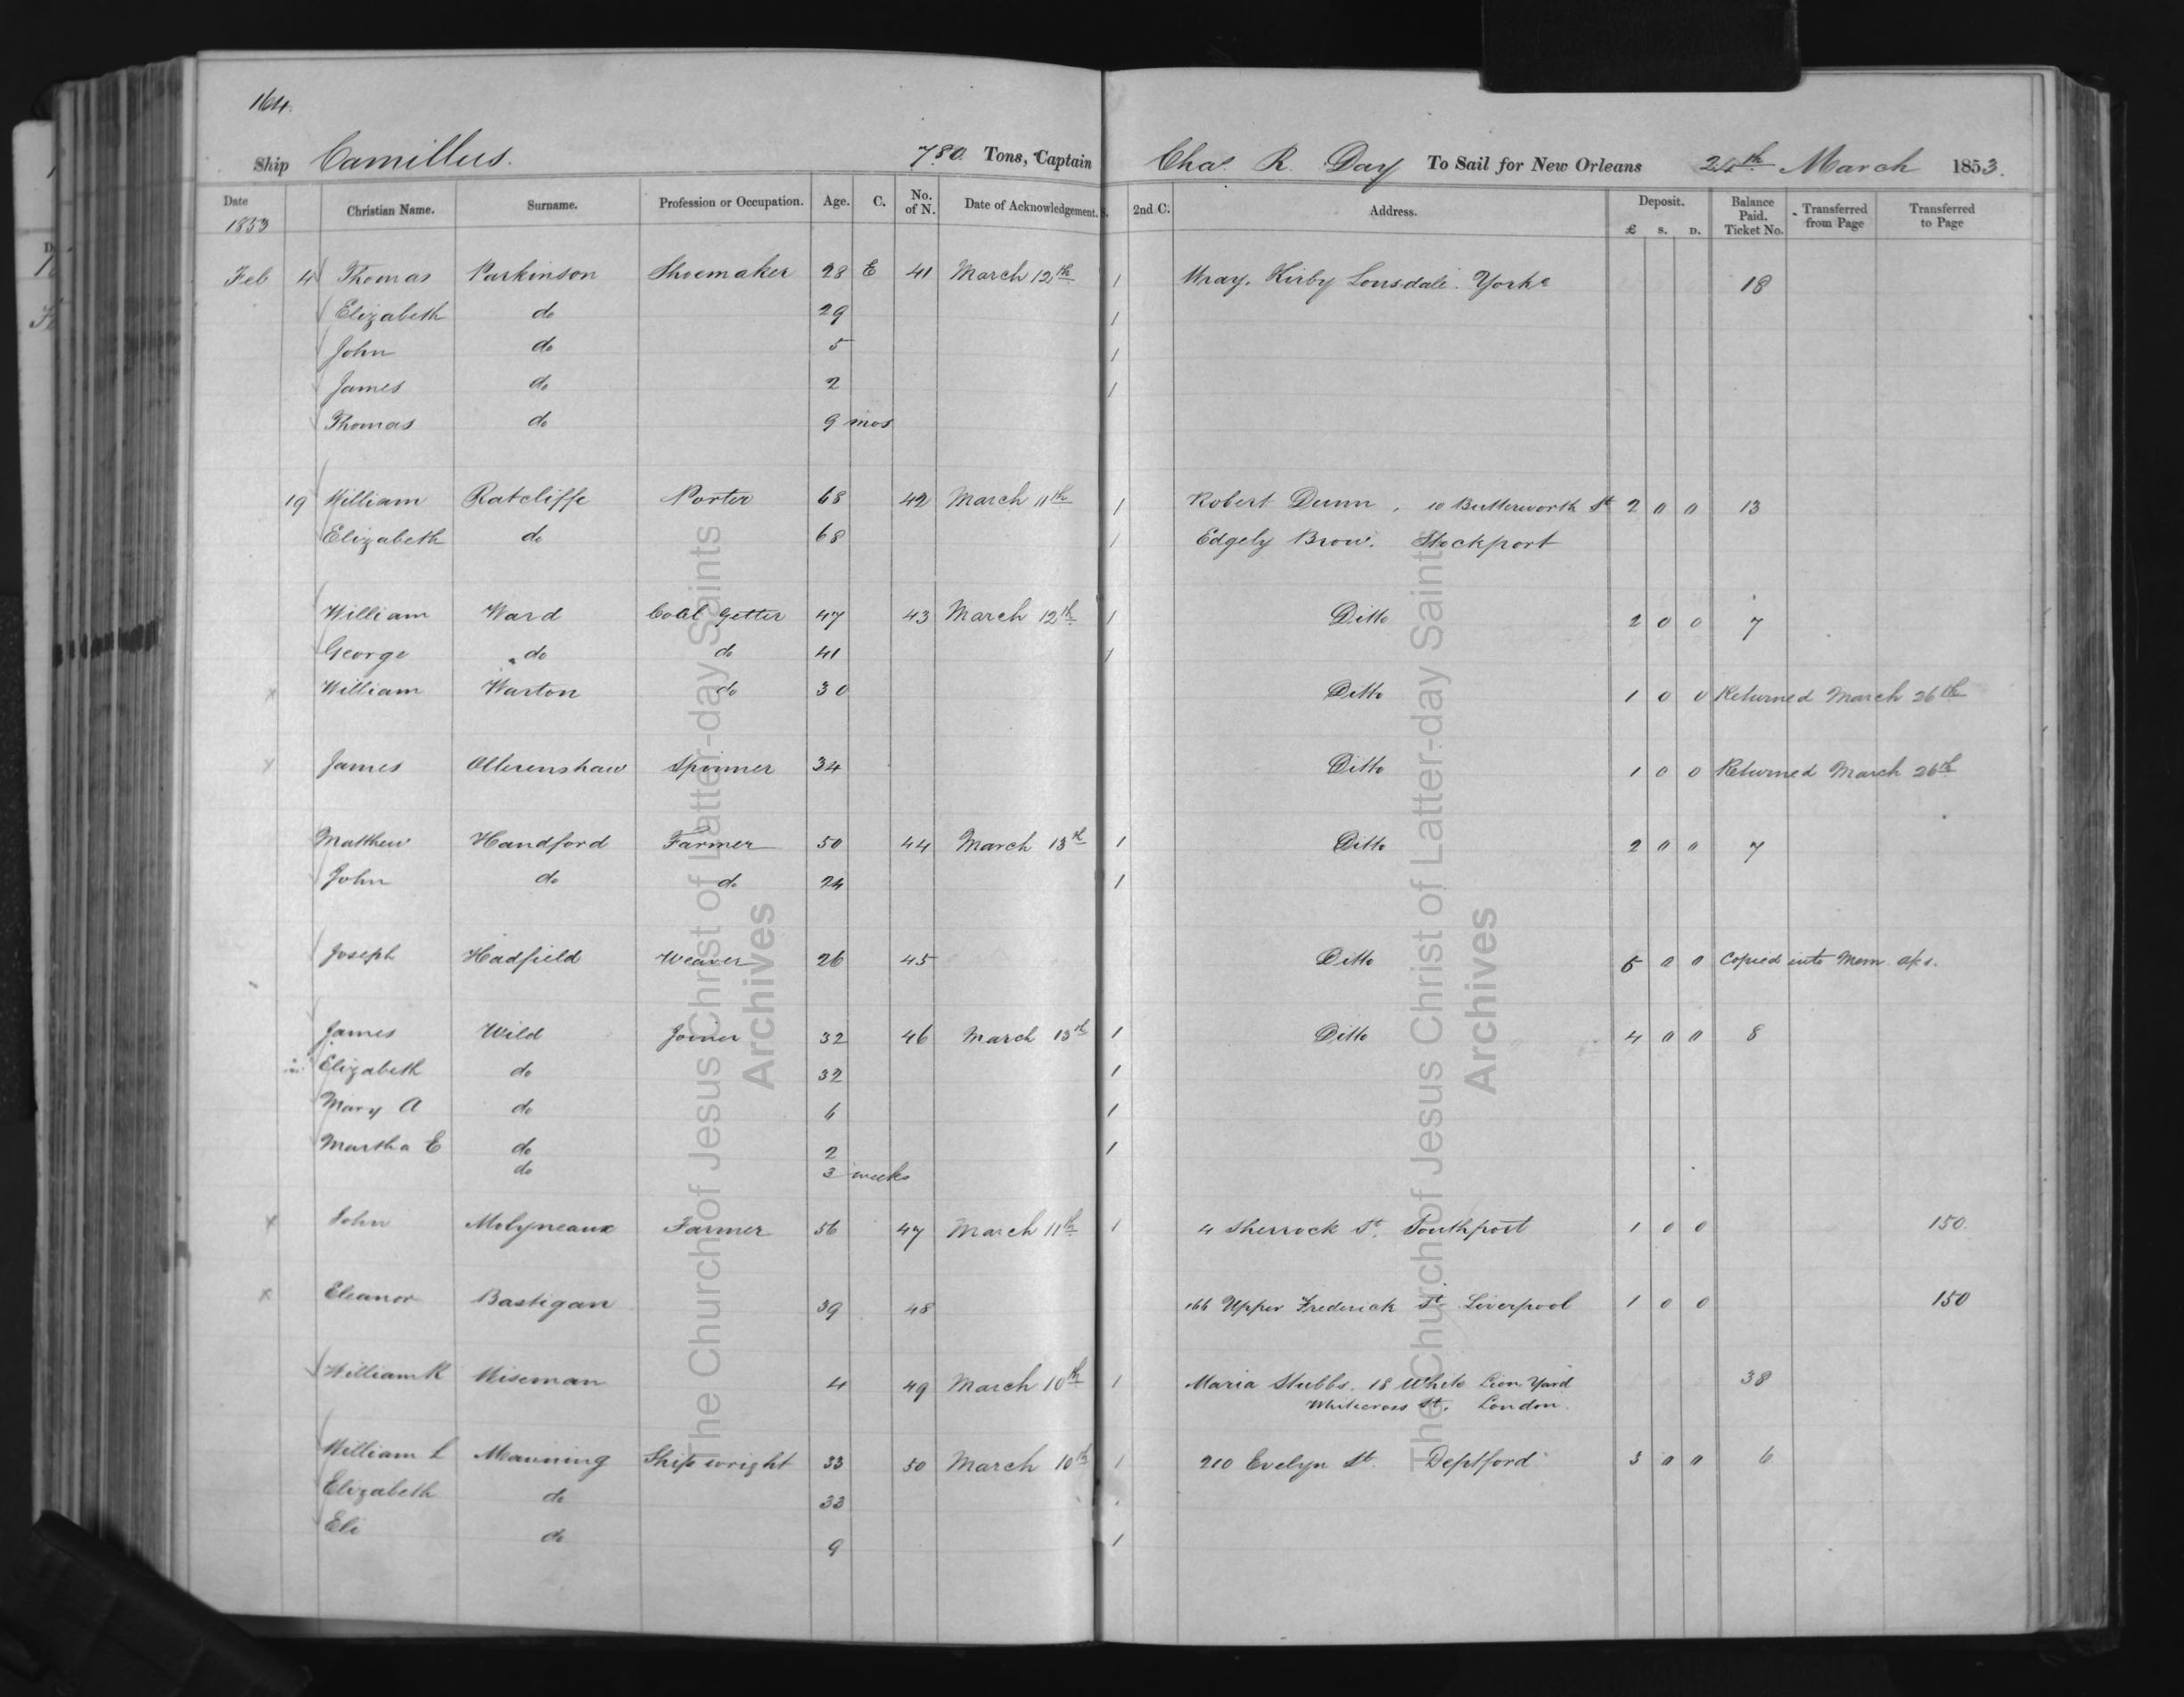 164.
Ship Camillus. 780. Tons, Captain Chas. R. Day To Sail for New Orleans 24th March 1853.
Date Christian Name. Surname. Profession or Occupation. Age. C. No. of N. Date of Acknowledgement. 2nd C. Address. Deposit. £ S. D. Balance Paid. Ticket No. Transferred from Page Transferred to Page
1853
Feb 4 Thomas Parkinson Shoemaker 28 E 41 March 12th 1 Wray. Kirby Lonsdale. Yorke 18
Elizabeth do 29 1
John do 5 1
James do 2 1
Thomas do 9 mos
19 William Ratcliffe Porter 68 42 March 11th 1 Robert Dunn, 10 Butterworth St 2 0 0 13
Elizabeth do 68 1 Edgely Brow. Stockport
William Ward Coal Getter 47 43 March 12th 1 Ditto 2 0 0 7
George do do 41 1
x William Warton do 30 Ditto 1 0 0 Returned March 26th
x James Ollerenshaw Spinner 34 Ditto 1 0 0 Returned March 26th
Matthew Handford Farmer 50 44 March 13th 1 Ditto 2 0 0 7
John do do 24 1
Joseph Hadfield Weaver 26 45 Ditto 5 0 0 Copied into Mem a/cs.
James Wild Joiner 32 46 March 13th 1 Ditto 4 0 0 8
Elizabeth do 32 1
Mary A do 6 1
Martha E do 2 1
do 3 weeks
x John Molyneaux Farmer 56 47 March 11th 1 4 Sherrock St. Southport 1 0 0 150.
x Eleanor Bastigan 39 48 166 Upper Frederick St. Liverpool 1 0 0 150
William R Wiseman 4 49 March 10th 1 Maria Stubbs. 18 White Lion Yard 38
Whitecross St. London.
William L Manning Ship wright 33 50 March 10th 1 210 Evelyn St. Deptford 3 0 0 6
Elizabeth do 33
Eli do 9 1
The Church of Jesus Christ of Latter-day Saints
Archives
The Church of Jesus Christ of Latter-day Saints
Archives